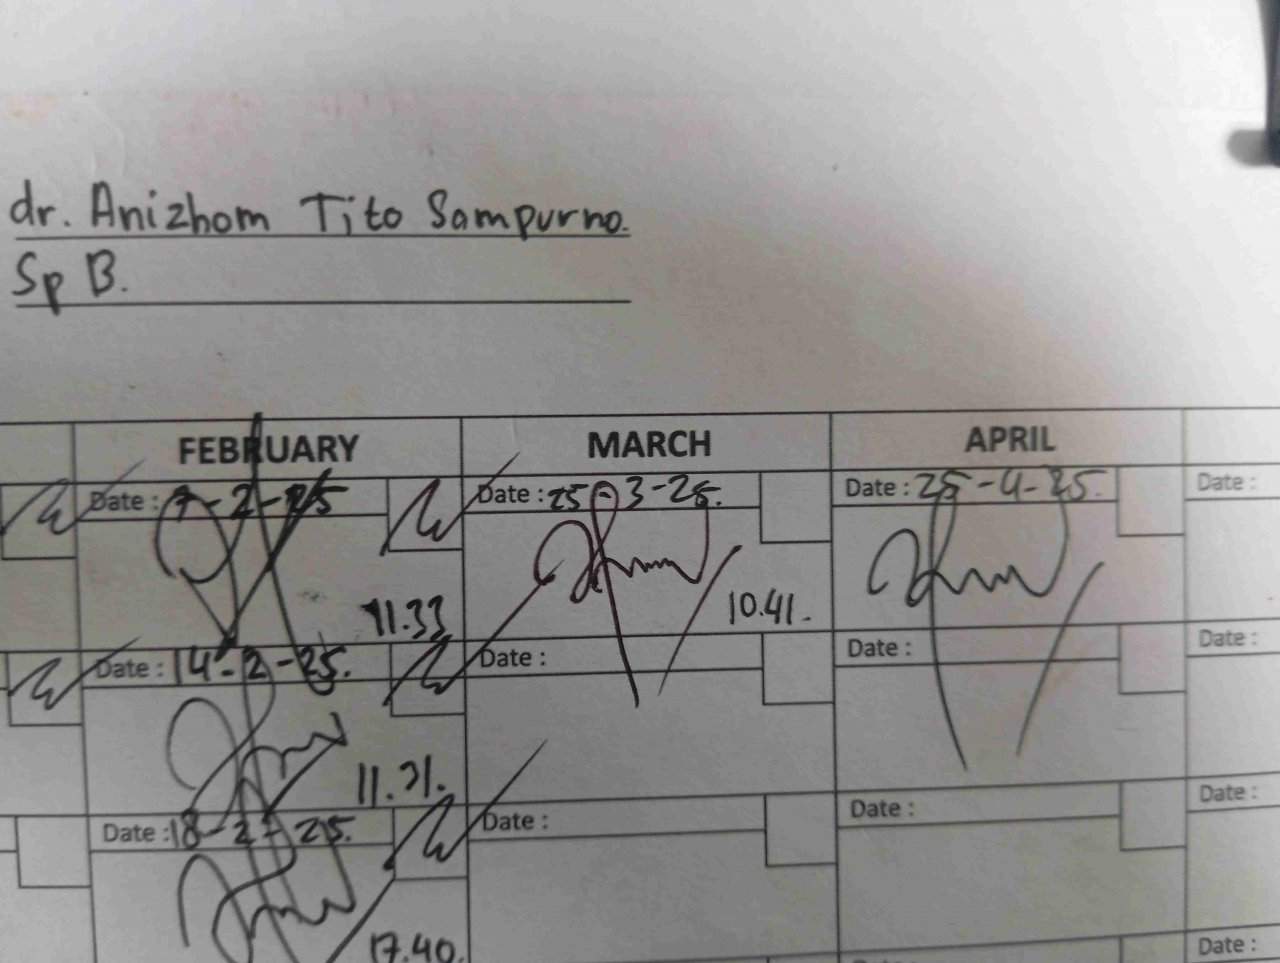 dr. Anizhom Tito Sampurno.
Sp B.
FEBRUARY MARCH APRIL
Date : 7-2-25 Date : 25-3-25. Date : 25-4-25. Date :
11.33 10.41.
Date : 14-2-25. Date : Date : Date :
11.31.
Date : 18-2-25. Date : Date : Date :
17.40. Date :